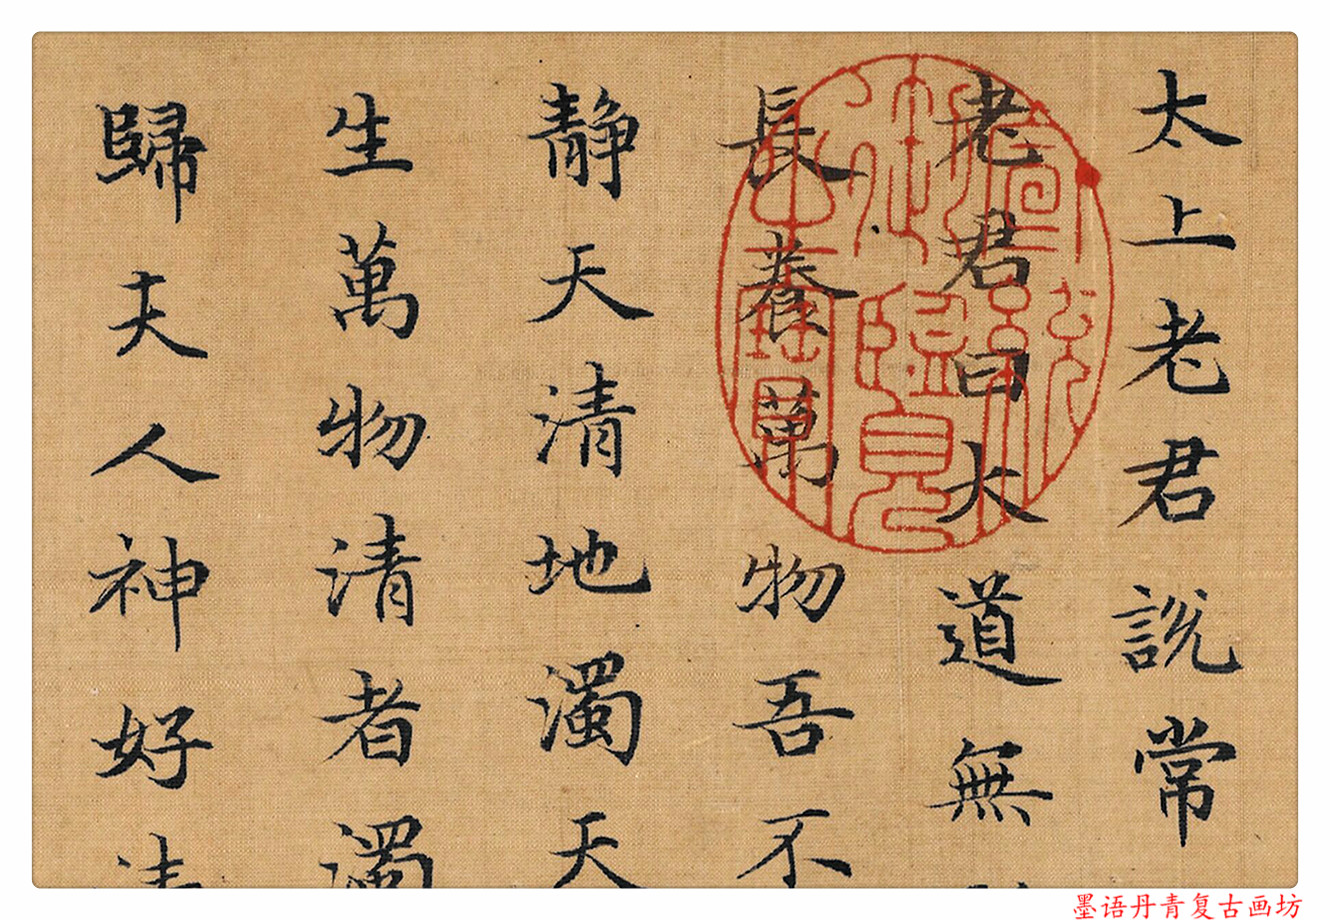 太上老君說常
老君曰大道無
長養萬物吾不
靜天清地濁天
生萬物清者濁
歸夫人神好清
宣統御覽之寶
墨语丹青复古画坊